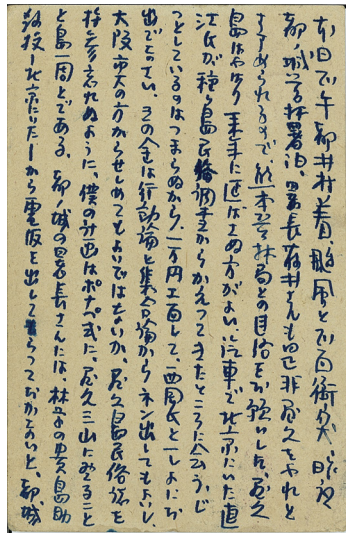 本日下午都井村着、颱風と下面衝突、昨夜
都城営林署泊、署長 さんも是非屋久をやれと
すすめられるので、熊本営林局との連絡をお願いした、屋久
島はやはり来年に延ばさぬ方がよい、汽車で北京にいた直
江氏が種子島民俗調査からかえってきたところに会う、じ
っとしているのはつまらぬから、一万円工面して、西岡氏と一しょにお
出で下さい、その金は行動論と集合論からネン出してもよいし、
大阪市大の方からせしめてもよいではないか、屋久島民俗誌を
持参忘れぬように、僕の計画はポナペ式に、屋久三山にのぼること
と島一周とである、都ノ城の署長さんには、林学の 島助
教授 北京 から電報を出してもらっておかないと、都城